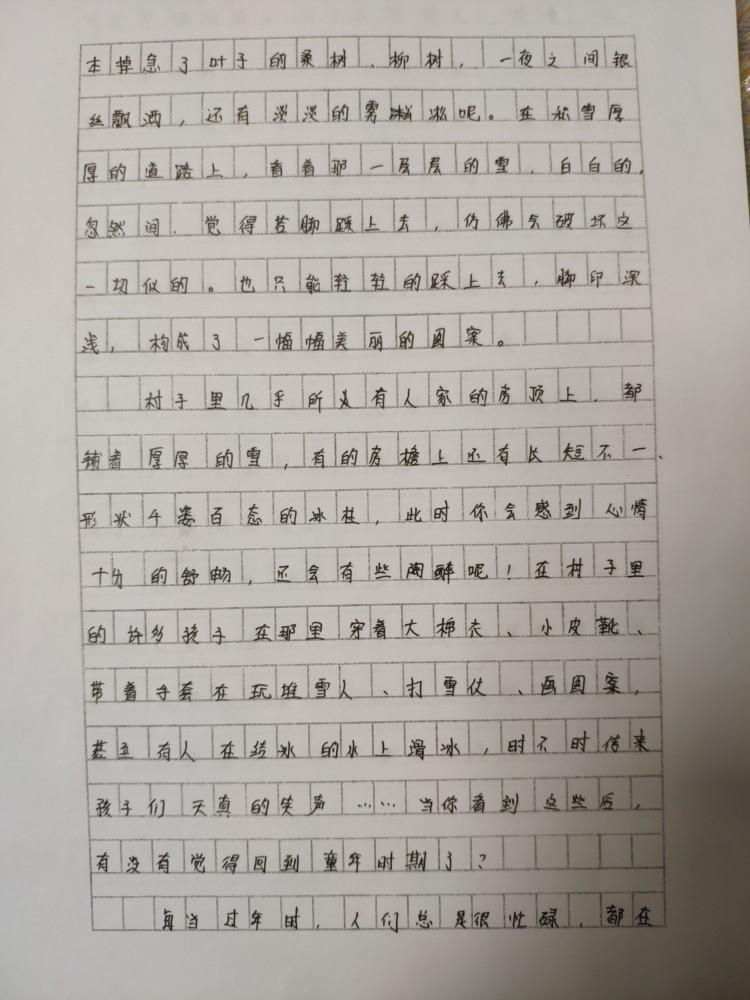 本掉急了叶子的桑树、柳树，一夜之间银
丝飘洒，还有淡淡的雾凇凇呢。在积雪厚
厚的道路上，看着那一层层的雪，白白的，
忽然间，觉得若脚踩上去，仿佛会破坏这
一切似的。也只能轻轻的踩上去，脚印深
浅，构成了一幅幅美丽的图案。
村子里几乎所以有人家的房顶上，都
铺着厚厚的雪，有的房檐上还有长短不一、
形状千姿百态的冰柱，此时你会感到心情
十分的舒畅，还会有些陶醉呢！在村子里
的许多孩子在那里穿着大棉衣、小皮靴、
带着手套在玩堆雪人、打雪仗、画图案，
甚至有人在结冰的水上滑冰，时不时传来
孩子们天真的笑声……当你看到这些后，
有没有觉得回到童年时期了？
每当过年时，人们总是很忙碌，都在